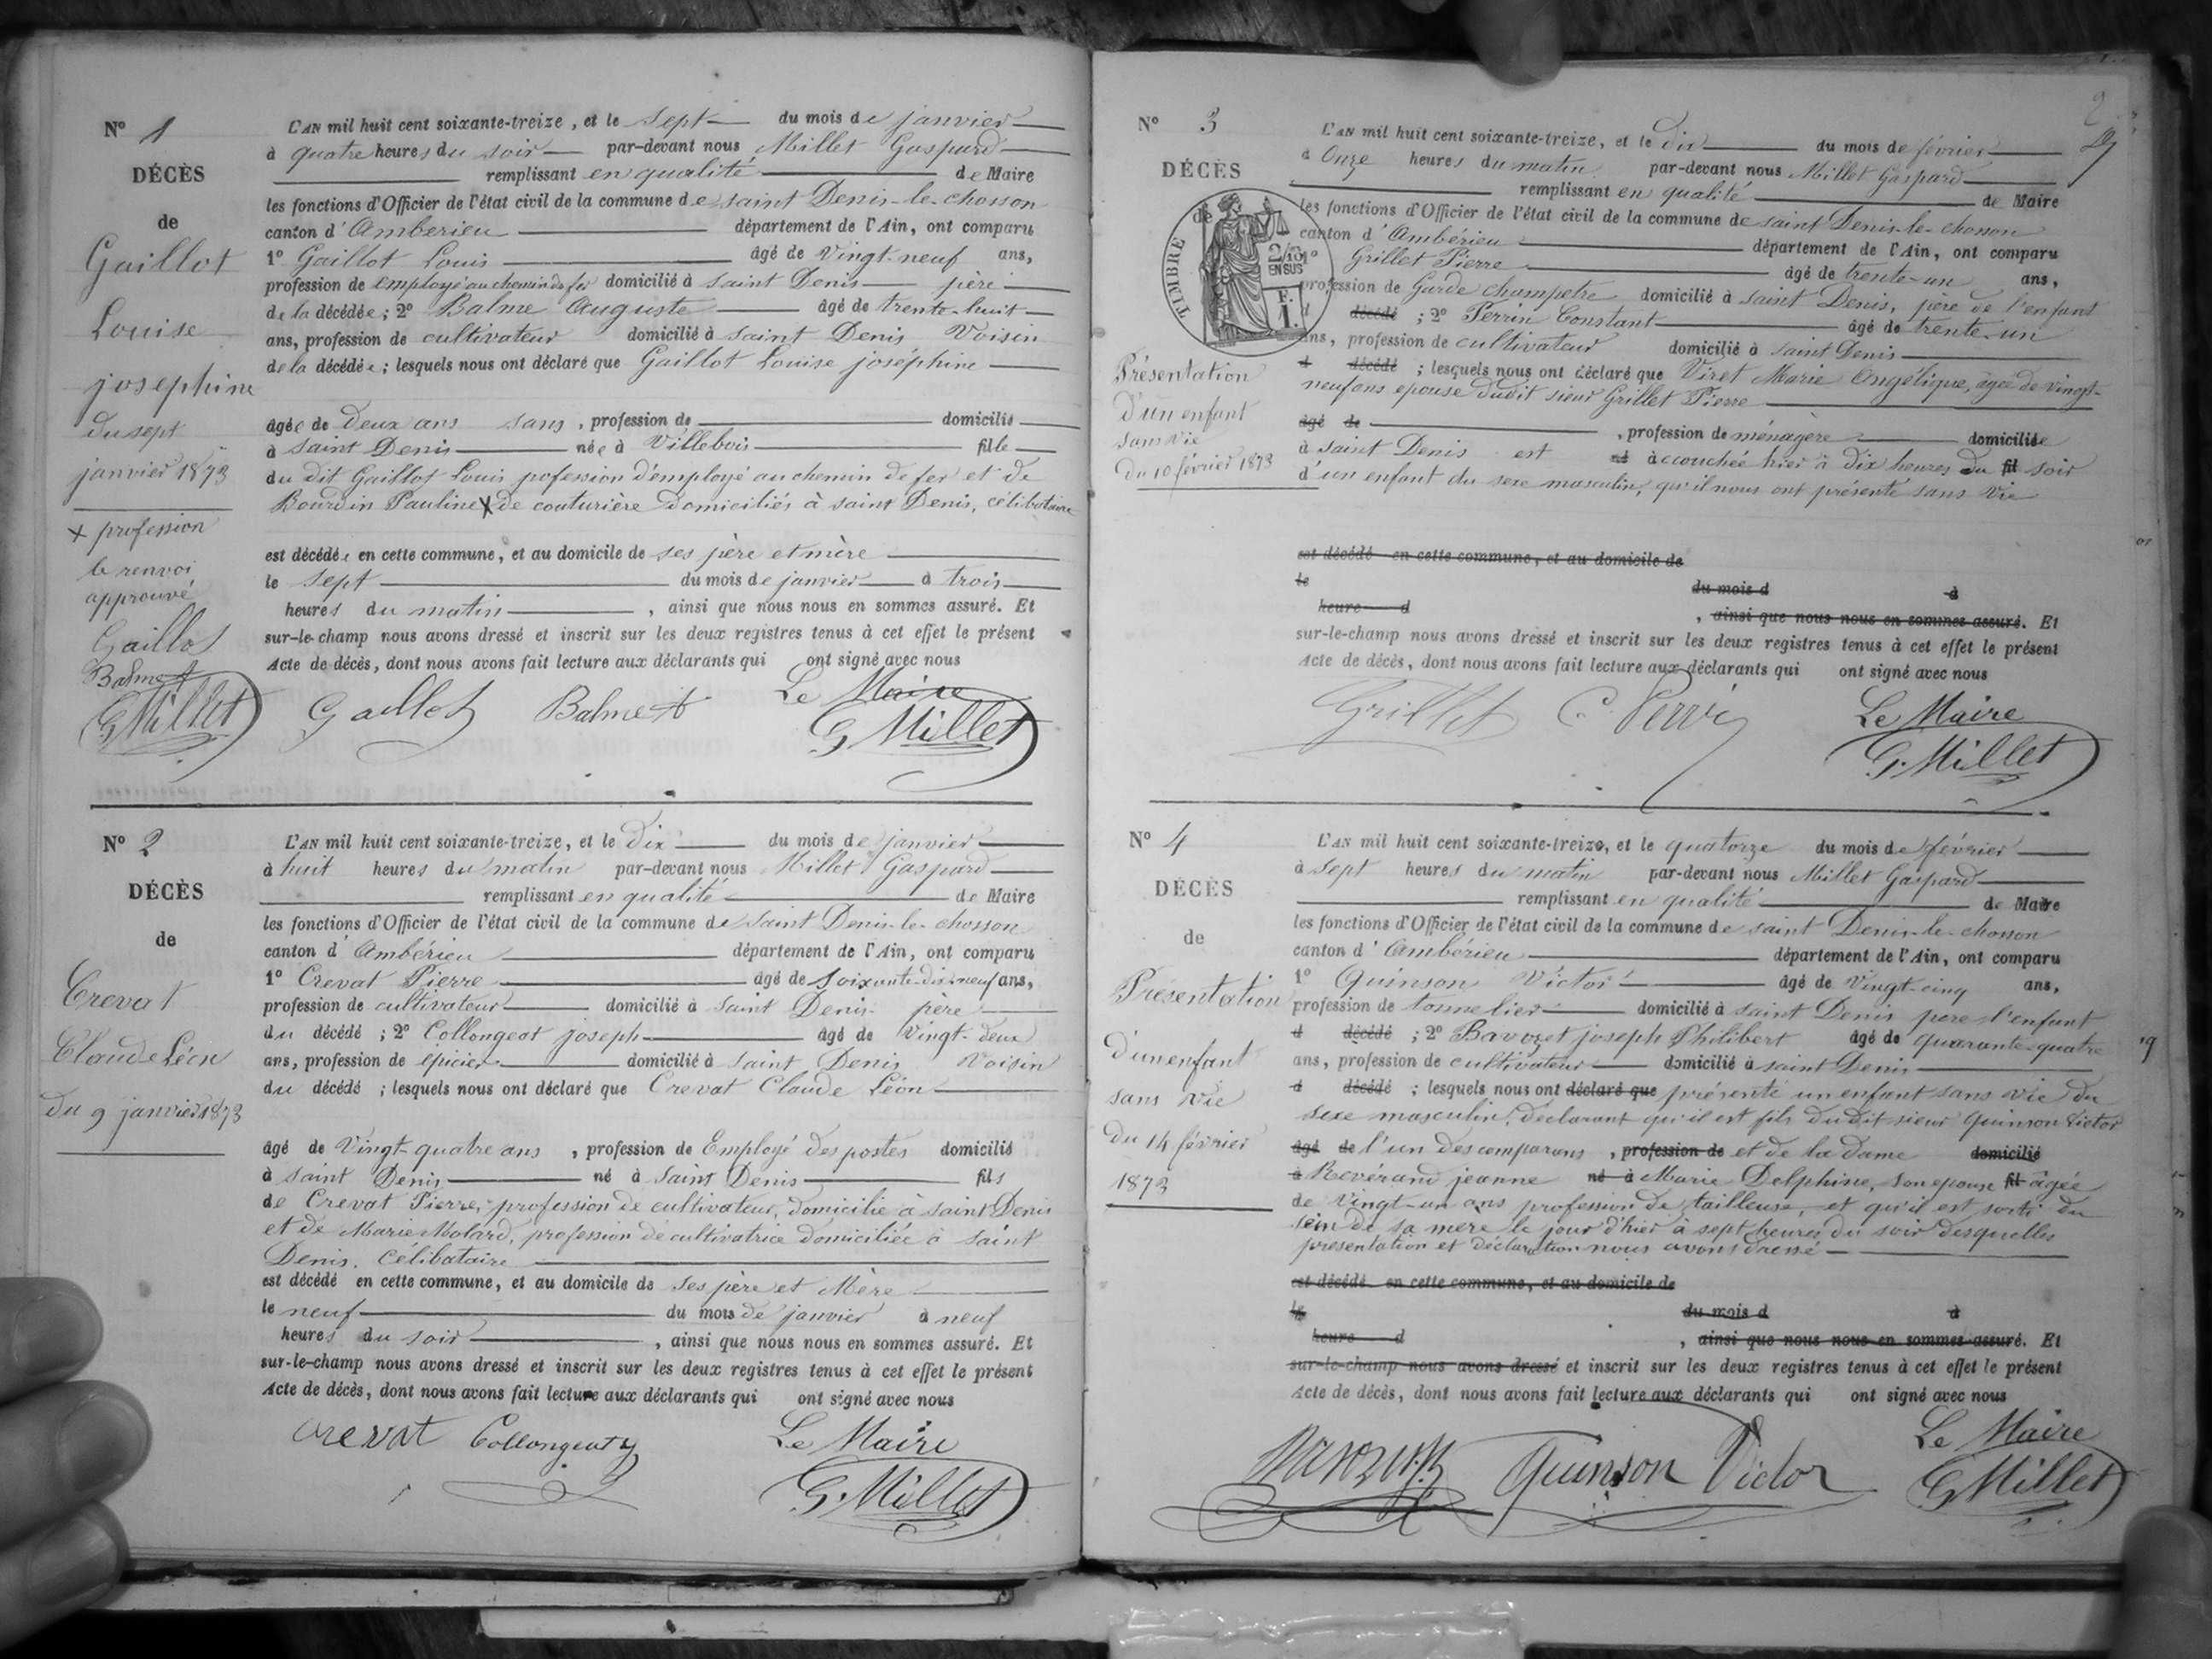 N° 1
DÉCÈS
de
Gaillot
Louise
josephine
du sept
janvier 1873
+ profession
le renvoi
approuvé
Gaillot
Balme A
G Millet
L'AN mil huit cent soixante-treize, et le sept du mois de janvier
à quatre heures du soir par-devant nous Millet Gaspard
remplissant en qualité de Maire
les fonctions d'Officier de l'état civil de la commune de saint Denis-le-chosson
canton d'Amberieu département de l'Ain, ont comparu
1° Gaillot Louis âgé de Vingt-neuf ans,
profession de employé au chemin de fer domicilié à saint Denis père
de la décédée ; 2° Balme Auguste âgé de trente-huit
ans, profession de cultivateur domicilié à saint Denis Voisin
de la décédée ; lesquels nous ont déclaré que Gaillot Louise joséphine
âgée de Deux ans sans, profession de domicilié
à saint Denis née à Villebois fille
du dit Gaillot Louis pofession d'employé au chemin de fer et de
Bourdin Pauline + de couturière domiciliés à saint Denis, célibataire
est décédée en cette commune, et au domicile de ses père et mère
le sept du mois de janvier à trois
heures du matin, ainsi que nous nous en sommes assuré. Et
sur-le-champ nous avons dressé et inscrit sur les deux registres tenus à cet effet le présent
Acte de décès, dont nous avons fait lecture aux déclarants qui ont signé avec nous
Gaillot Balme A Le Maire
G Millet
N° 2
DÉCÈS
de
Crevat
Claude Léon
du 9 janvier 1873
L'AN mil huit cent soixante-treize, et le Dix du mois de janvier
à huit heures du matin par-devant nous Millet Gaspard
remplissant en qualité de Maire
les fonctions d'Officier de l'état civil de la commune de saint Denis-le-chosson
canton d'Ambérieu département de l'Ain, ont comparu
1° Crevat Pierre âgé de soixante-dix-neuf ans,
profession de cultivateur domicilié à saint Denis père
du décédé ; 2° Collongeat joseph âgé de Vingt-deux
ans, profession de épicier domicilié à saint Denis Voisin
du décédé ; lesquels nous ont déclaré que Crevat Claude Léon
âgé de Vingt-quatre ans, profession de Employé des postes domicilié
à saint Denis né à Saint Denis fils
de Crevat Pierre, profession de cultivateur, domicilié à saint Denis
et de Marie Molard, profession de cultivatrice domiciliée à saint
Denis. Célibataire
est décédé en cette commune, et au domicile de ses père et Mère
le neuf du mois de janvier à neuf
heures du soir, ainsi que nous nous en sommes assuré. Et
sur-le-champ nous avons dressé et inscrit sur les deux registres tenus à cet effet le présent
Acte de décès, dont nous avons fait lecture aux déclarants qui ont signé avec nous
Crevat Collongeat Le Maire
G. Millet
2
N° 3
DÉCÈS
de
TIMBRE
2/10
EN SUS
F.
1.
Présentation
D'un enfant
sans vie
du 10 février 1873
L'AN mil huit cent soixante-treize, et le dix du mois de février
à Onze heures du matin par-devant nous Millet Gaspard
remplissant en qualité de Maire
les fonctions d'Officier de l'état civil de la commune de saint Denis-le-chosson
canton d'Ambérieu département de l'Ain, ont comparu
1° Grillet Pierre âgé de trente-un ans,
profession de Garde champetre domicilié à saint Denis, père de l'enfant
d décédé ; 2° Perrin Constant âgé de trente-un
ans, profession de cultivateur domicilié à saint Denis
d décédé ; lesquels nous ont déclaré que Viret Marie Angélique, agée de vingt-
neuf ans epouse dudit sieur Grillet Pierre
âgé de , profession de ménagère domiciliée
à saint Denis est né accouchée hier à dix heures du fil soir
d'un enfant du sexe masculin, qu'il nous ont présenté sans vie
est décédé en cette commune, et au domicile de
le du mois d à
heure d , ainsi que nous nous en sommes assuré. Et
sur-le-champ nous avons dressé et inscrit sur les deux registres tenus à cet effet le présent
Acte de décès, dont nous avons fait lecture aux déclarants qui ont signé avec nous
Grillet C. Perrin Le Maire
G. Millet
N° 4
DÉCÈS
de
Présentation
d'un enfant
sans vie
du 14 février
1873
L'AN mil huit cent soixante-treize, et le quatorze du mois de février
à sept heures du matin par-devant nous Millet Gaspard
remplissant en qualité de Maire
les fonctions d'Officier de l'état civil de la commune de saint Denis-le-chosson
canton d'Ambérieu département de l'Ain, ont comparu
1° Quinson Victor âgé de Vingt-cinq ans,
profession de tonnelier domicilié à saint Denis pere l'enfant
d décédé ; 2° Bavozet joseph Philibert âgé de quarante-quatre
ans, profession de cultivateur domicilié à saint Denis
d décédé ; lesquels nous ont déclaré que présenté un enfant sans vie du
sexe masculin, déclarant qu'il est fils dudit sieur Quinson Victor
âgé de l'un des comparans, profession de et de la dame domicilié
à Revérand jeanne né à Marie Delphine, son epouse fil âgée
de Vingt-un ans profession de tailleuse, et qu'il est sorti du
sein de sa mere le jour d'hier à sept heures du soir desquelles
présentation et déclaration nous avons dressé
est décédé en cette commune, et au domicile de
le du mois d à
heure d , ainsi que nous nous en sommes assuré. Et
sur-le-champ nous avons dressé et inscrit sur les deux registres tenus à cet effet le présent
Acte de décès, dont nous avons fait lecture aux déclarants qui ont signé avec nous
Bavozet Quinson Victor Le Maire
G Millet